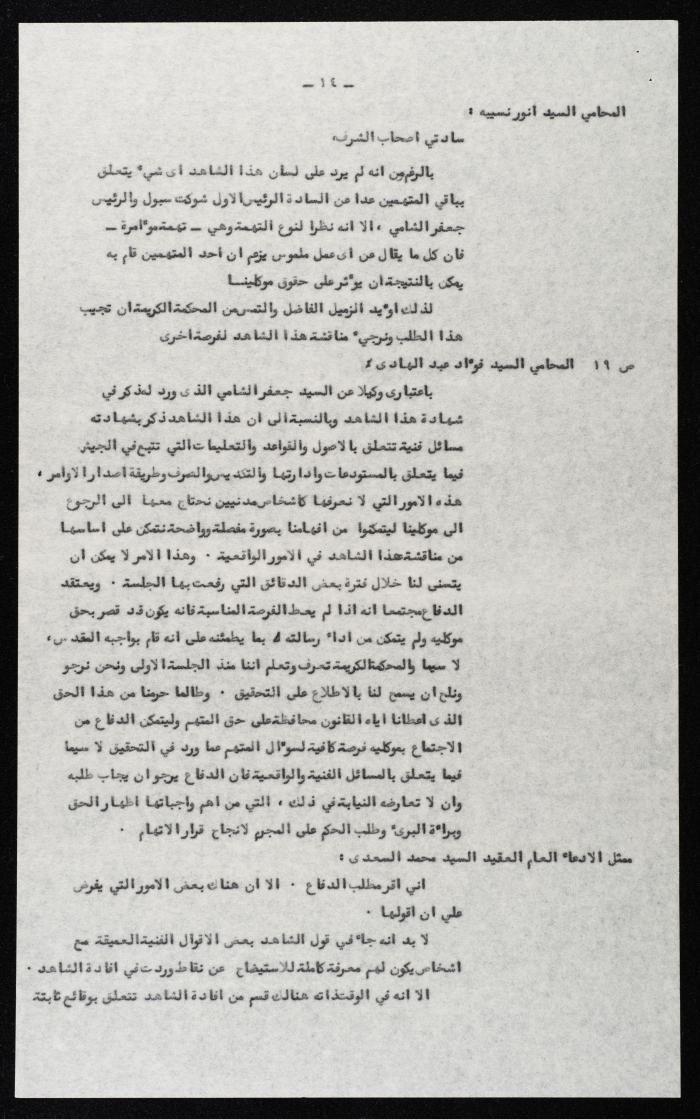 ـ ١٤ ـ
المحامي السيد انور نسيبه :
سادتي اصحاب الشرف،
بالرغم من انه لم يرد على لسان هذا الشاهد اى شيء يتعلق
بباقي المتهمين عدا عن السادة الرئيس الاول شوكت سبول والرئيس
جعفر الشامي ، الا انه نظرا لنوع التهمة وهي ـ تهمة موءامرة ـ
فان كل ما يقال عن اى عمل ملموس يزعم ان احد المتهمين قام به
يمكن بالنتيجة ان يوءثر على حقوق موكلينا
لذلك اوءيد الزميل الفاضل والتمس من المحكمة الكريمة ان تجيب
هذا الطلب ونرجيء مناقشة هذا الشاهد لفرصة اخرى
ص ١٩ المحامي السيد فوءاد عبد الهادى :
باعتبارى وكيلا عن السيد جعفر الشامي الذى ورد له ذكر في
شهادة هذا الشاهد وبالنسبة الى ان هذا الشاهد ذكر بشهادته
مسائل فنية تتعلق بالاصول والقواعد والتعليمات التي تتبع في الجيش
فيما يتعلق بالمستودعات وادارتها والتكديس والصرف وطريقة اصدار الاوامر ،
هذه الامور التي لا نعرفها كاشخاص مدنيين نحتاج معها الى الرجوع
الى موكلينا ليتمكنوا من افهامنا بصورة مفصلة وواضحة نتمكن على اساسها
من مناقشة هذا الشاهد في الامور الواقعية . وهذا الامر لا يمكن ان
يتسنى لنا خلال فترة بعض الدقائق التي رفعت بها الجلسة . ويعتقد
الدفاع مجتمعا انه اذا لم يعط الفرصة المناسبة فانه يكون قد قصر بحق
موكليه ولم يتمكن من اداء رسالته بما يطمئنه على انه قام بواجبه المقدس ،
لا سيما والمحكمة الكريمة تعرف وتعلم اننا منذ الجلسة الاولى ونحن نرجو
ونلح ان يسمح لنا بالاطلاع على التحقيق . وطالما حرمنا من هذا الحق
الذى اعطانا اياه القانون محافظة على حق المتهم وليتمكن الدفاع من
الاجتماع بموكليه فرصة كافية لسوءال المتهم عما ورد في التحقيق لا سيما
فيما يتعلق بالمسائل الفنية والواقعية فان الدفاع يرجو ان يجاب طلبه
وان لا تعارضه النيابة في ذلك ، التي من اهم واجباتها اظهار الحق
وبراءة البرىء وطلب الحكم على المجرم لانجاح قرار الاتهام .
ممثل الادعاء العام العقيد السيد محمد السعدى :
اني اقر مطلب الدفاع . الا ان هناك بعض الامور التي يفرض
علي ان اقولها .
لا بد انه جاء في قول الشاهد بعض الاقوال الفنية العميقة مع
اشخاص يكون لهم معرفة كاملة للاستيضاح عن نقاط وردت في افادة الشاهد .
الا انه في الوقت ذاته هنالك قسم من افادة الشاهد تتعلق بوقائع ثابتة